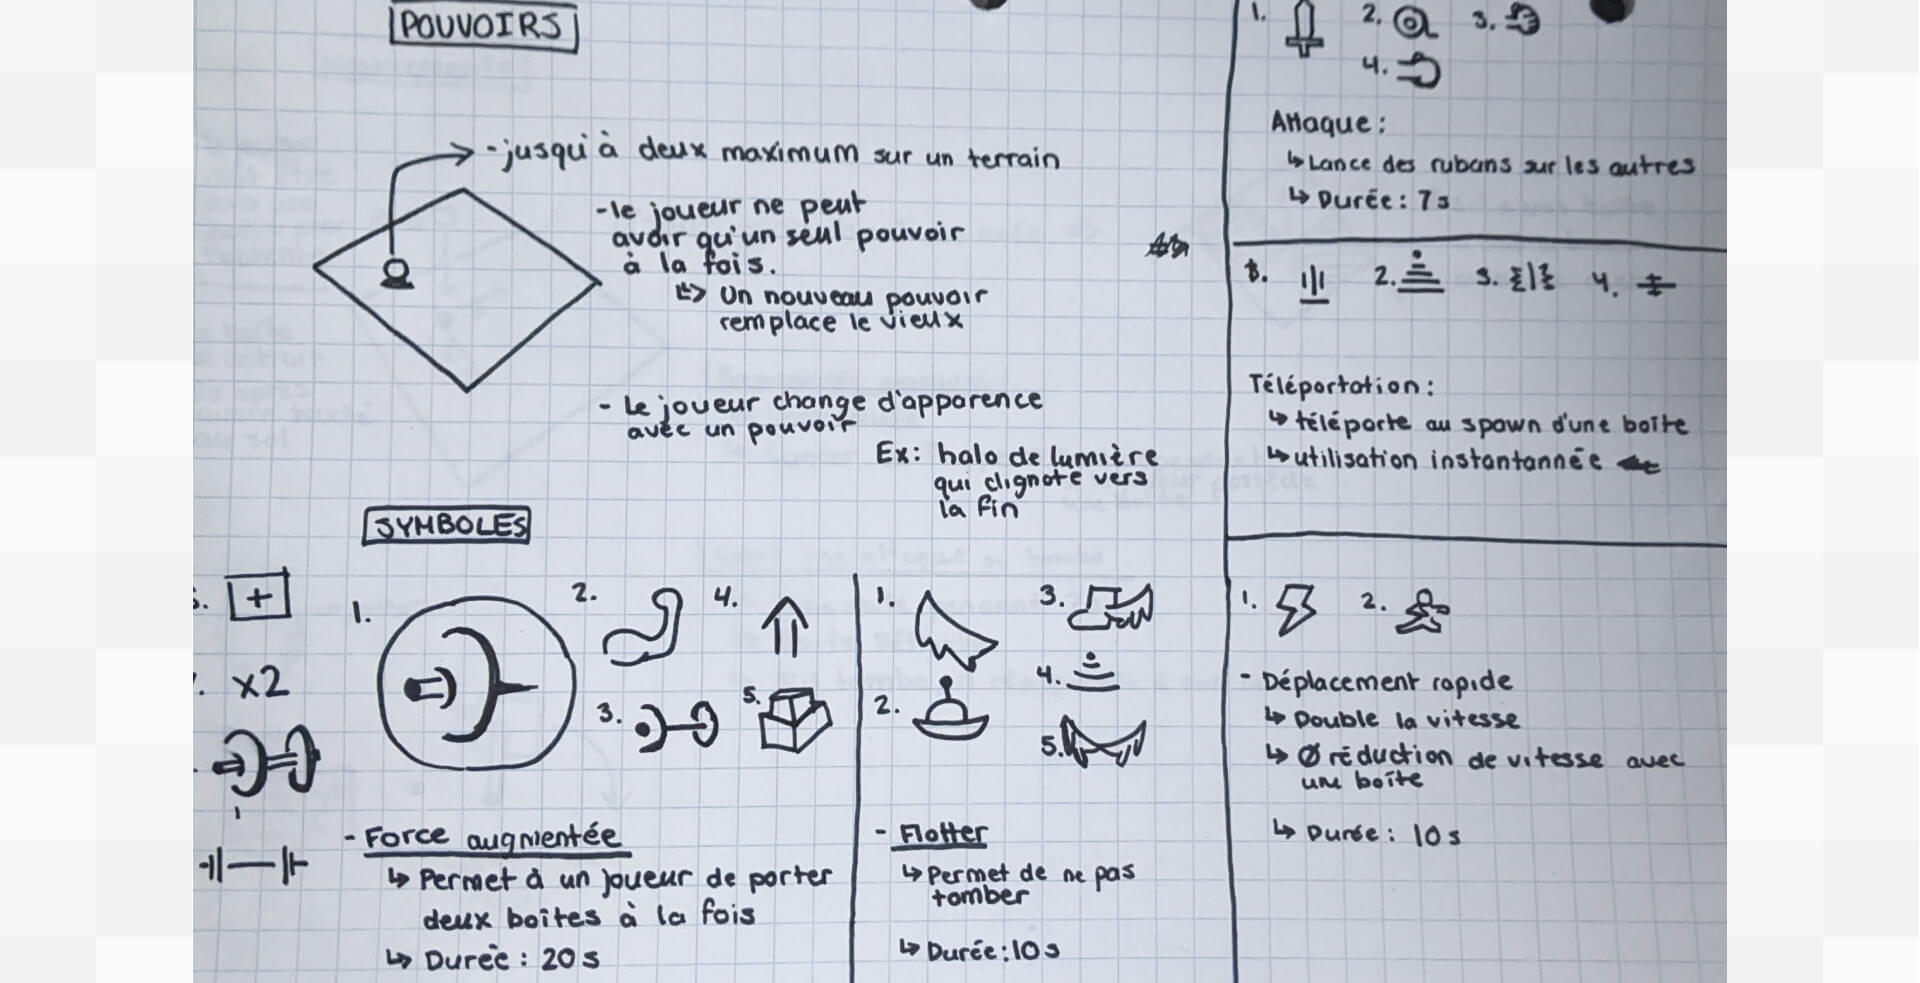 POUVOIRS
-jusqu'à deux maximum sur un terrain
-le joueur ne peut
avoir qu'un seul pouvoir
à la fois.
↳ Un nouveau pouvoir
remplace le vieux
- Le joueur change d'apparence
avec un pouvoir
Ex: halo de lumière
qui clignote vers
la fin
SYMBOLES
+
x2
1.
2.
3.
4.
5.
- Force augmentée
↳ Permet à un joueur de porter
deux boîtes à la fois
↳ Durée : 20 s
1.
2.
3.
4.
5.
- Flotter
↳ Permet de ne pas
tomber
↳ Durée : 10 s
1. 2. 3.
4.
Attaque :
↳ Lance des rubans sur les autres
↳ Durée : 7 s
2. 3. 4.
Téléportation :
↳ téléporte au spawn d'une boîte
↳ utilisation instantannée
1. 2.
- Déplacement rapide
↳ Double la vitesse
↳ Ø réduction de vitesse avec
une boîte
↳ Durée : 10 s